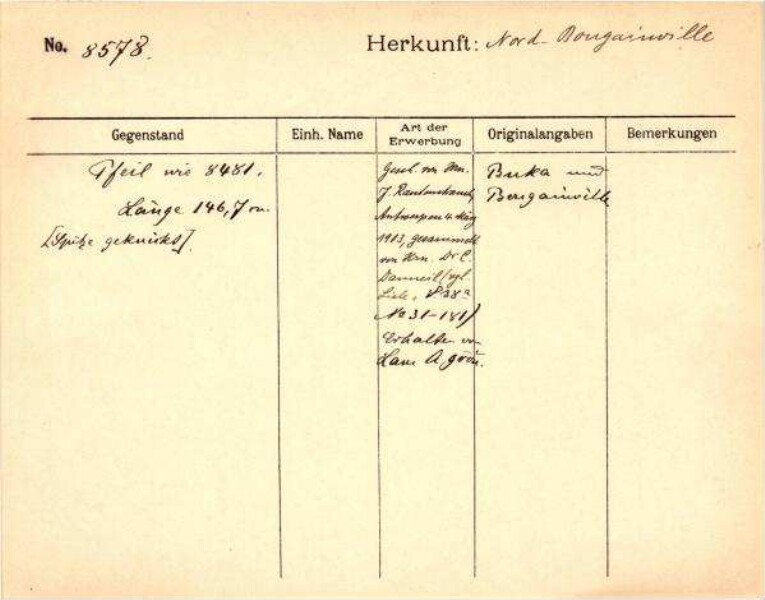 No. 8578. Herkunft: Nord-Bougainville
Gegenstand Einh. Name Art der Erwerbung Originalangaben Bemerkungen
Pfeil wie 8481.
Länge 146,7 cm.
[Spitze geknickt].
Gesch. von Hrn.
J.
Antwerpen 4. März
1913, gesammelt
von Hrn. Dr C.
Danneil (vgl.
Liste, 838a
No 31-181)
Erhalten von
Buka und
Bougainville